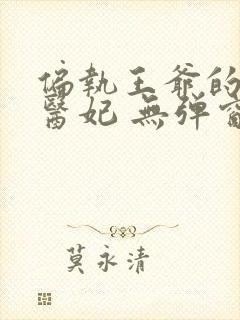 偏執王爺的
醫妃 無彈
莫永清